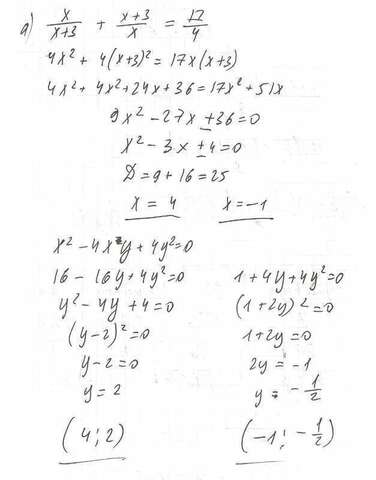 а) x/(x+3) + (x+3)/x = 17/4
4x² + 4(x+3)² = 17x(x+3)
4x² + 4x² + 24x + 36 = 17x² + 51x
9x² - 27x ± 36 = 0
x² - 3x ± 4 = 0
D = 9 + 16 = 25
x = 4   x = -1
x² - 4xy + 4y² = 0
16 - 16y + 4y² = 0   1 + 4y + 4y² = 0
y² - 4y + 4 = 0   (1 + 2y)² = 0
(y - 2)² = 0   1 + 2y = 0
y - 2 = 0   2y = -1
y = 2   y = -1/2
(4; 2)   (-1; -1/2)